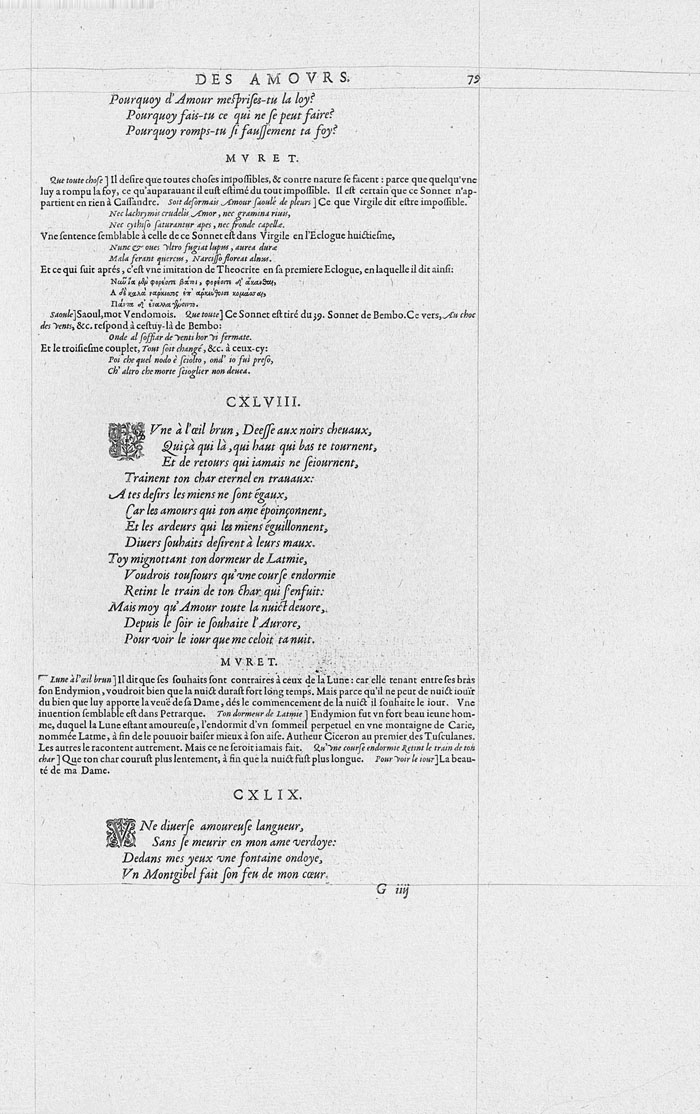 DES AMOVRS. 79
Pourquoy d'Amour mesprises-tu la loy?
Pourquoy fais-tu ce qui ne se peut faire?
Pourquoy romps-tu si faussement ta foy?
MVRET.
Que toute chose] Il desire que toutes choses impossibles, & contre nature se facent : parce que quelqu'vne
luy a rompu la foy, ce qu'auparauant il eust estimé du tout impossible. Il est certain que ce Sonnet n'ap-
partient en rien à Cassandre. Soit desormais Amour saoulé de pleurs] Ce que Virgile dit estre impossible.
Nec lachrymis crudelis Amor, nec gramina riuis,
Nec cythiso saturantur apes, nec fronde capellæ.
Vne sentence semblable à celle de ce Sonnet est dans Virgile en l'Eclogue huictiesme,
Nunc & oues vltro fugiat lupus, aurea duræ
Mala ferant quercus, Narcisso floreat alnus.
Et ce qui suit aprés, c'est vne imitation de Theocrite en sa premiere Eclogue, en laquelle il dit ainsi:
Saoule] Saoul, mot Vendomois. Que toute] Ce Sonnet est tiré du 39. Sonnet de Bembo. Ce vers, Au choc
des vents, &c. respond à cestuy-là de Bembo:
Onde al soffiar de venti hor vi fermate.
Et le troisiesme couplet, Tout soit changé, &c. à ceux-cy:
Poi che quel nodo è sciolto, ond' io fui preso,
Ch' altro che morte scioglier non deuea.
CXLVIII.
LVne à l'œil brun, Deesse aux noirs cheuaux,
Qui çà qui là, qui haut qui bas te tournent,
Et de retours qui iamais ne seiournent,
Trainent ton char eternel en trauaux:
A tes desirs les miens ne sont égaux,
Car les amours qui ton ame époinçonnent,
Et les ardeurs qui les miens éguillonnent,
Diuers souhaits desirent à leurs maux.
Toy mignottant ton dormeur de Latmie,
Voudrois tousiours qu'vne course endormie
Retint le train de ton char qui s'enfuit:
Mais moy qu'Amour toute la nuict deuore,
Depuis le soir ie souhaite l'Aurore,
Pour voir le iour que me celoit ta nuit.
MVRET.
Lune à l'œil brun] Il dit que ses souhaits sont contraires à ceux de la Lune : car elle tenant entre ses bras
son Endymion, voudroit bien que la nuict durast fort long temps. Mais parce qu'il ne peut de nuict iouïr
du bien que luy apporte la veuë de sa Dame, dés le commencement de la nuict il souhaite le iour. Vne
inuention semblable est dans Petrarque. Ton dormeur de Latmie] Endymion fut vn fort beau ieune hom-
me, duquel la Lune estant amoureuse, l'endormit d'vn sommeil perpetuel en vne montaigne de Carie,
nommée Latme, à fin de le pouuoir baiser mieux à son aise. Autheur Ciceron au premier des Tusculanes.
Les autres le racontent autrement. Mais ce ne seroit iamais fait. Qu'vne course endormie Retint le train de ton
char] Que ton char courust plus lentement, à fin que la nuict fust plus longue. Pour voir le iour] La beau-
té de ma Dame.
CXLIX.
VNe diuerse amoureuse langueur,
Sans se meurir en mon ame verdoye:
Dedans mes yeux vne fontaine ondoye,
Vn Montgibel fait son feu de mon cœur.
G iiij